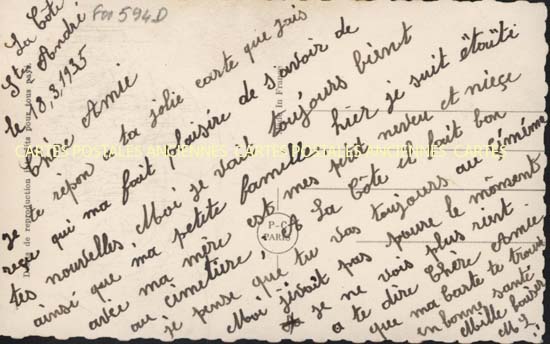 Fm 594D
La Côte
St André
le 8,3,1935
Chère Amie
Je repon ta jolie carte que jais
reçue qui ma fait plaisire de savoir de
tes nouvelles, Moi je vait toujours bient
ainsi que ma petite famelle hier je suit
avec ma mère est mes petit neveu et nieçe
au cimetière, A La Côte il fait bon
je pense que tu vas toujours au mémème
Moi j'ècrit pas pour le moment
je ne vois plus rient
a te dire Chère Amie
que ma carte te trouve
en bonne santé
Mille
M. L.
CARTES POSTALES ANCIENNES CARTES POSTALES ANCIENNES CARTES
P-C
PARIS
de reproduction réservés pour tous pays